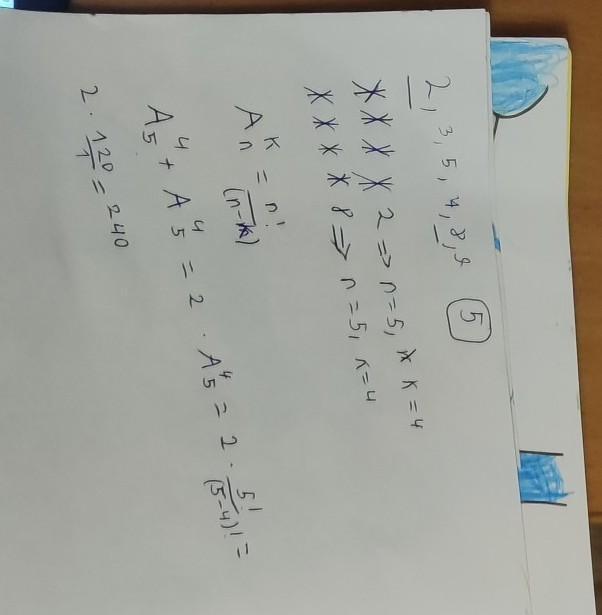 2, 3, 5, 7, 8, 9 5
* * * * 2 ⇒ n=5, k=4
* * * * 8 ⇒ n=5, k=4
A_n^k = n!/(n-k)
A_5^4 + A_5^4 = 2 · A_5^4 = 2 · 5!/(5-4)! =
2 · 120/1 = 240